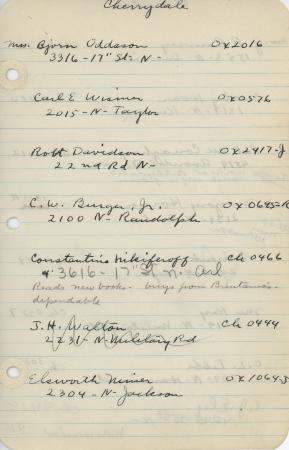 Cherrydale
Mrs. Bjorn Oddsson OX2016
3316-17" St. N-
Carl E Wismer OX0576
2015-N-Taylor
Robt Davidson OX2417-J
22nd Rd N-
C.W. Burger, Jr. OX0645-R
2100 N-Randolph
Constantine Nikiferoff Ch 0466
3616-17" St. N. Arl
Reads new books - buys from Brentano's-
dependable
J.H. Walton Ch 0444
2231-N-Military Rd
Elsworth OX1064-J
2304-N-Jackson